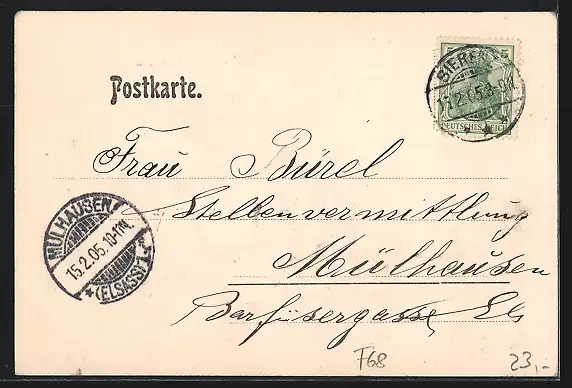 Postkarte.
5 5
DEUTSCHES REICH
15.2.05.
Frau Bürel
Stellenvermittlung
Mülhausen
Barfüsergasse Els
MÜLHAUSEN
15.2.05. 10-11N.
* (ELSASS) 1 *
F68
23,-